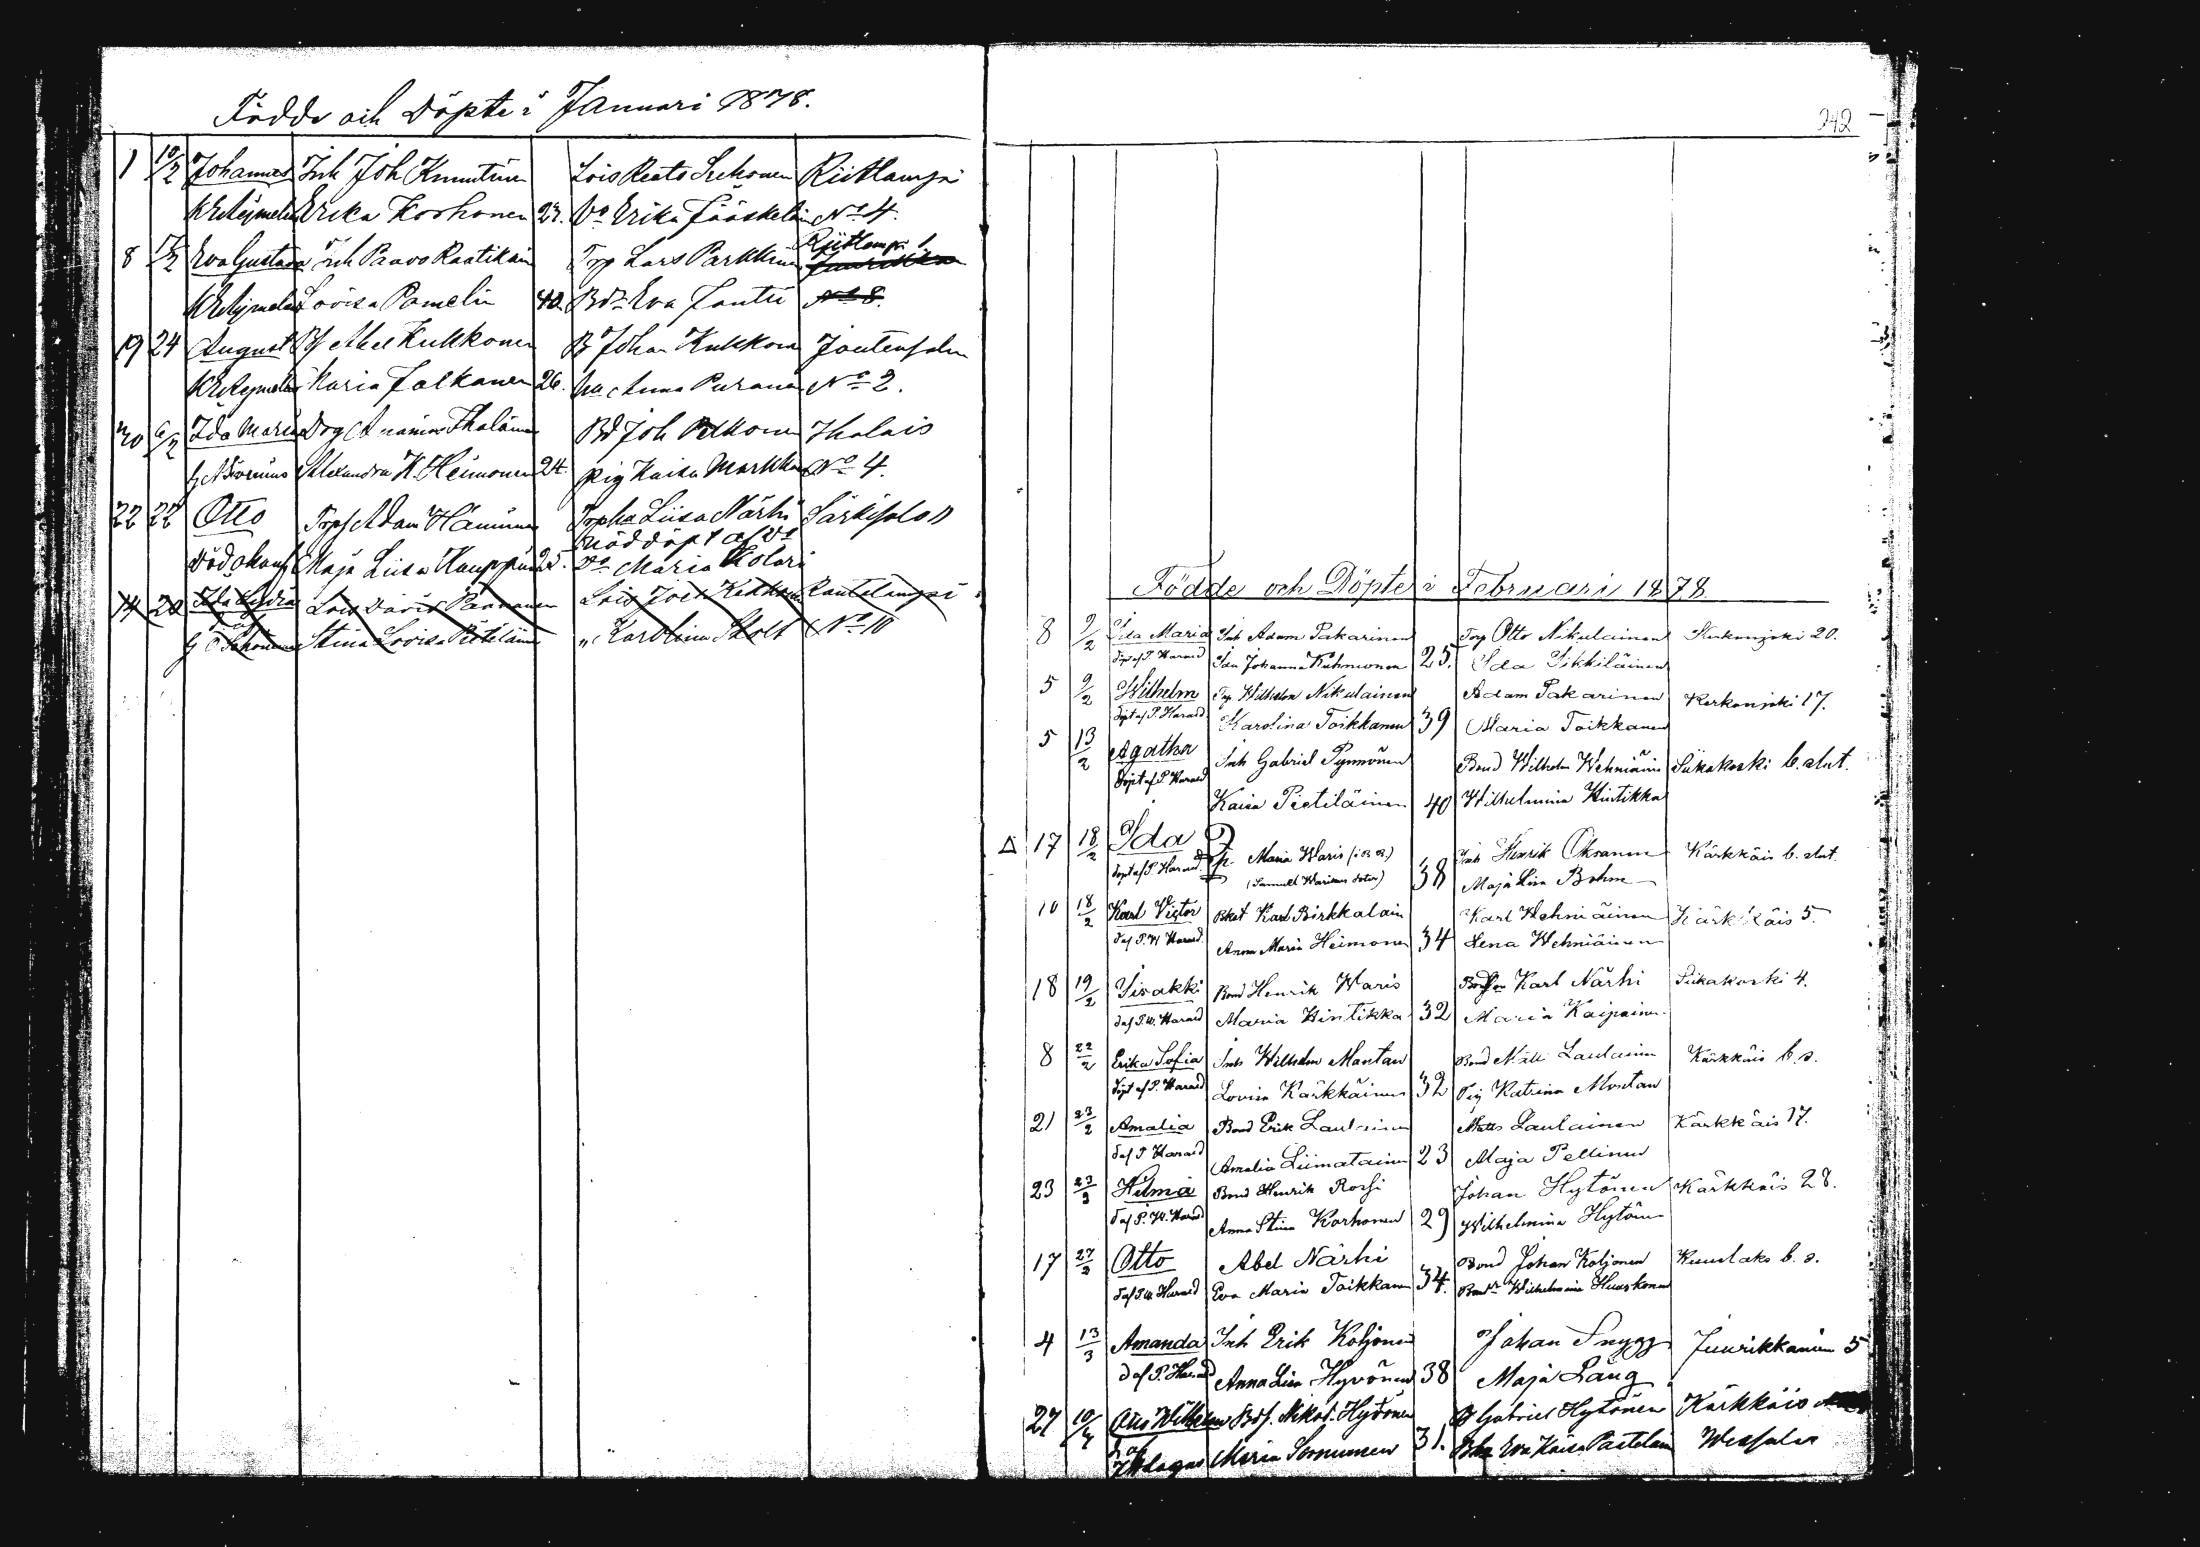 Födde och Döpte i Januari 1878.
1 10/2 Johannes Inh Joh Knuutinen Lois Reeto Riitlampi
Erika Korhonen 27. Do Erika Jääskeläin No 4.
8 Eva Gustava Inh Paavo Raatikain Torp Lars Parkkinen Riitlampi 1
Lovisa Pomelin 40. Bdr Eva Jantti No 8.
19 24 August Abel Kukkonen B Johan Kukkonen Joutensalm
Maria Jalkanen 26. Anna Puranen No 2.
20 6/2 Ida Maria Bd Joh Pelkonen Ihalais
Alexandra H. Heimonen 24. pig Kaisa Markka No 4.
22 22 Otto Adam Häninen Liisa Närhi Särkisalo 11
nöddöpt af Do
Maja Liisa Kauppinen 25. Do Maria Kolari
14 20 Lois Rautalampi
Stina Lovisa " Karolina Stolt No 10
242
Födde och Döpte i Februari 1878.
8 9/2 Ida Maria Inh Adam Pakarinen Torp Otto Nikulainen Kerkonjoki 20.
Döpt af P. Harald Ida Johanna Kuhmonen 25. Ida Sikkiläinen
5 9/2 Wilhelm Torp Wilhelm Nikulainen Adam Pakarinen Kerkonjoki 17.
Döpt af P. Harald Karolina Toikkanen 39 Maria Toikkanen
5 13/2 Agatha Inh Gabriel Pynnönen Bond Wilhelm Wehniäin Siikakoski b. slut.
Döpt af P. Harald Kaisa Pietiläinen 40 Wilhelmina Hintikka
17 18/2 Ida Maria Waris Inh Henrik Oksanen Kärkkäis b. slut.
Döpt af P. Harald (Samuel Warisens doter) 38 Maja Lisa Bohm
10 18/2 Karl Victor Karl Pirkkalain Karl Wehniäinen Kärkkäis 5.
D af P. W Harald Anna Maria Heimonen 34 Lena Wehniäinen
18 19/2 Iisakki Bond Henrik Waris Karl Närhi Siikakoski 4.
D af P. W. Harald Maria Hintikka 32 Maria Kaipainen
8 22/2 Erika Sofia Inh Wilhelm Montan Bond Matts Laulainen Kärkkäis b. s.
Döpt af P. Harald Lovisa Kärkkäinen 32 Pig Katrina Montan
21 23/2 Amalia Bond Erik Laulainen Matts Laulainen Kärkkäis 17.
D af P Harald Amalia Liimatainen 23 Maja Pellinen
23 23/3 Hilma Bond Henrik Rossi Johan Hytönen Kärkkäis 28.
D af P. W. Harald Anna Stina Korhonen 29 Wilhelmina Hytönen
17 27/2 Otto Abel Närhi Bond Johan Koljonen Kuuslaks b. s.
D af P. W. Harald Eva Maria Toikkanen 34. Wilhelmina Huuskonen
4 13/3 Amanda Inh Erik Koljonen Johan Snygg Juurikkaniem 5
D af P. Harald Anna Lisa Hyvönen 38 Maja Lång
27 10/4 Otto Wilhelm Bds. Nikod. Hytönen Gabriel Hytönen Kärkkäis
Maria Sormunen 31. Eva Kaisa Wessalu